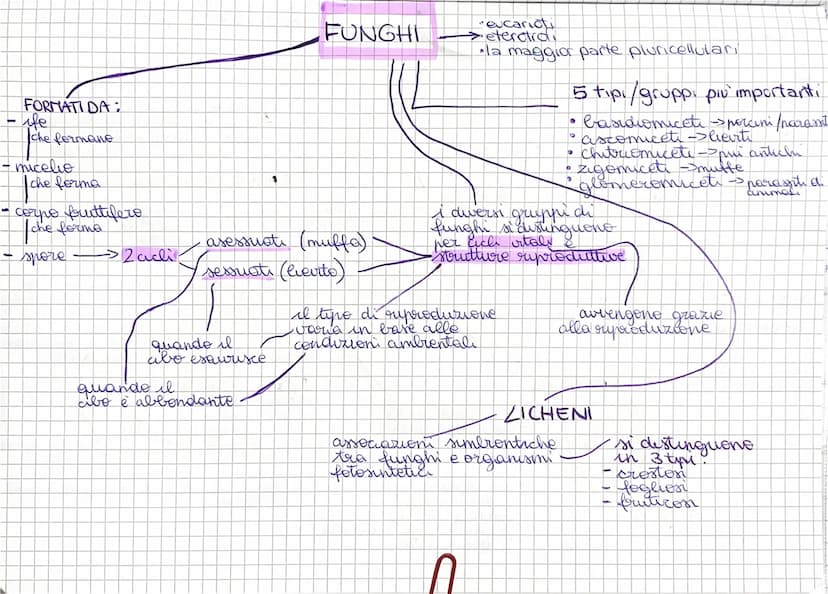 FUNGHI
• eucarioti
• eterotrofi
• la maggior parte pluricellulari
5 tipi/gruppi più importanti
• basidiomiceti → porcini/parassiti
• ascomiceti → lieviti
• chitridiomiceti → più antichi
• zigomiceti → muffe
• glomeromiceti → parassiti di
animali
FORMATI DA:
- ife
che formano
- micelio
che forma
- corpo fruttifero
che forma
- spore → 2 cicli
asessuati (muffa)
sessuati (lievito)
i diversi gruppi di
funghi si distinguono
per cicli vitali e
strutture riproduttive
avvengono grazie
alla riproduzione
il tipo di riproduzione
varia in base alle
condizioni ambientali
quando il
cibo esaurisce
quando il
cibo è abbondante
LICHENI
associazioni simbiontiche
tra funghi e organismi
fotosintetici
si distinguono
in 3 tipi:
- crostosi
- fogliosi
- fruticosi